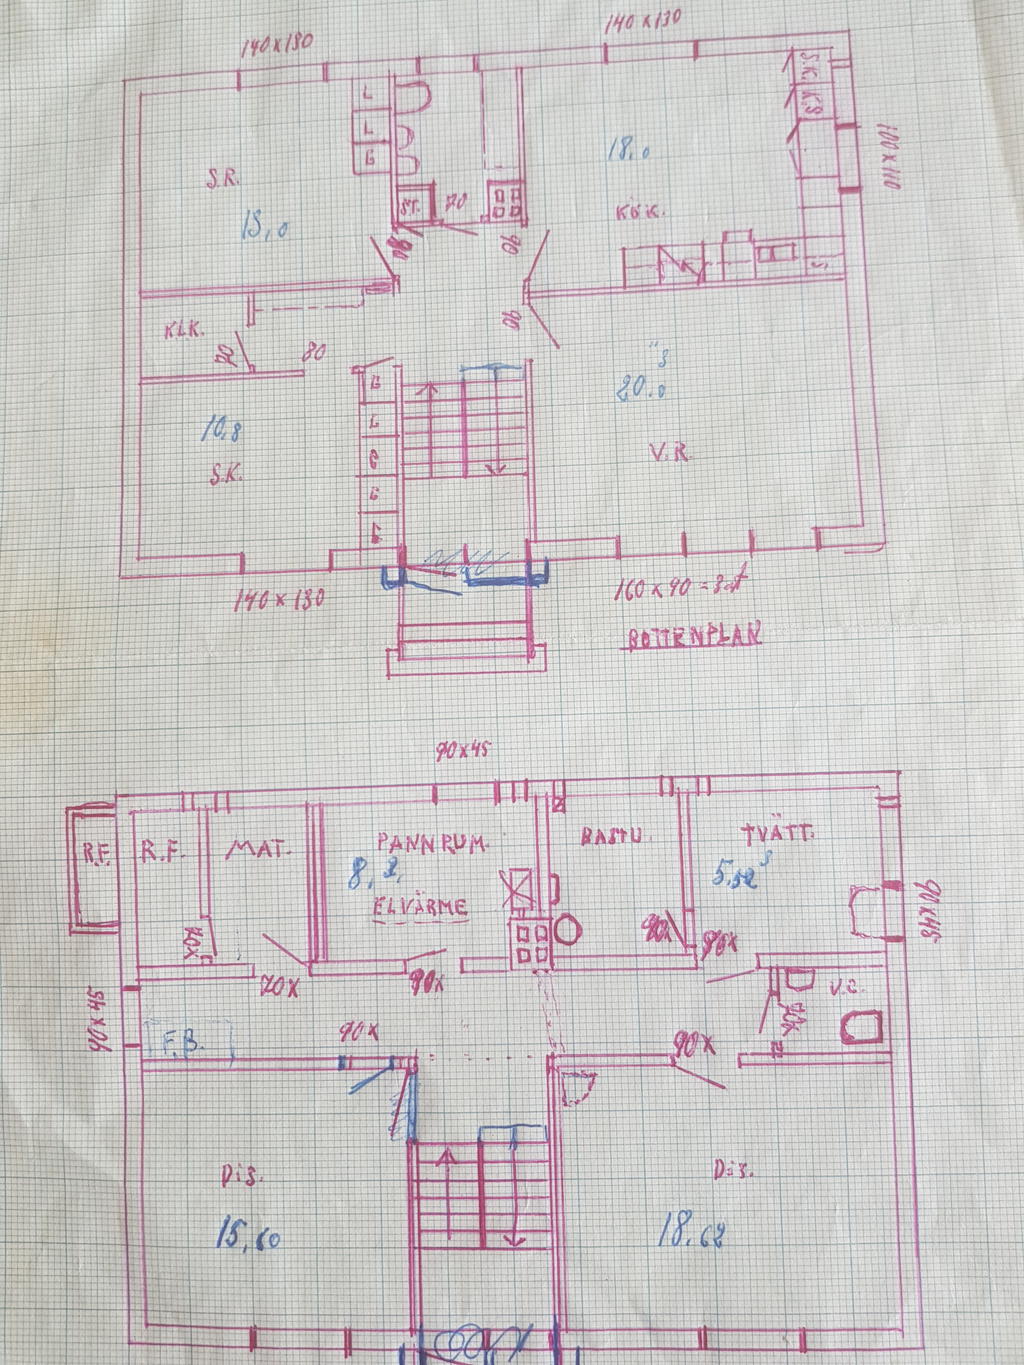 140 x 130
140 x 130
L
L
B
S.K.
K.S
100 x 110
S.R.
18.0
ST.
70
KÖK.
15,0
90
90
KLK.
90
80
B
20.0
10,8
L
S.K.
V.R.
G
140 x 130
160 x 90 = 3 st
BOTTENPLAN
90 x 45
R.F.
R.F.
MAT.
PANNRUM.
BASTU.
TVÄTT.
8,2
5,52
ELVÄRME
90 x 45
70X
90X
90X
90x45
F.B.
90X
90X
DiS.
Dis.
15,60
18.62